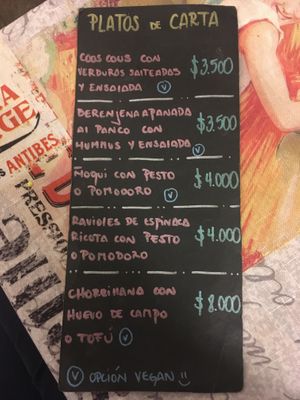 PLATOS DE CARTA
COOS COUS CON
VERDURAS SALTEADAS $3.500
Y ENSALADA V
BERENJENA APANADA
AL PANCO CON $3.500
HUMMUS Y ENSALADA V
ÑOQUI CON PESTO $4.000
O POMODORO V
RAVIOLES DE ESPINACA
RICOTA CON PESTO $4.000
O POMODORO
CHORRILLANA CON $8.000
HUEVO DE CAMPO
O TOFÚ V
V OPCIÓN VEGAN
ANTIBES
PRESSION